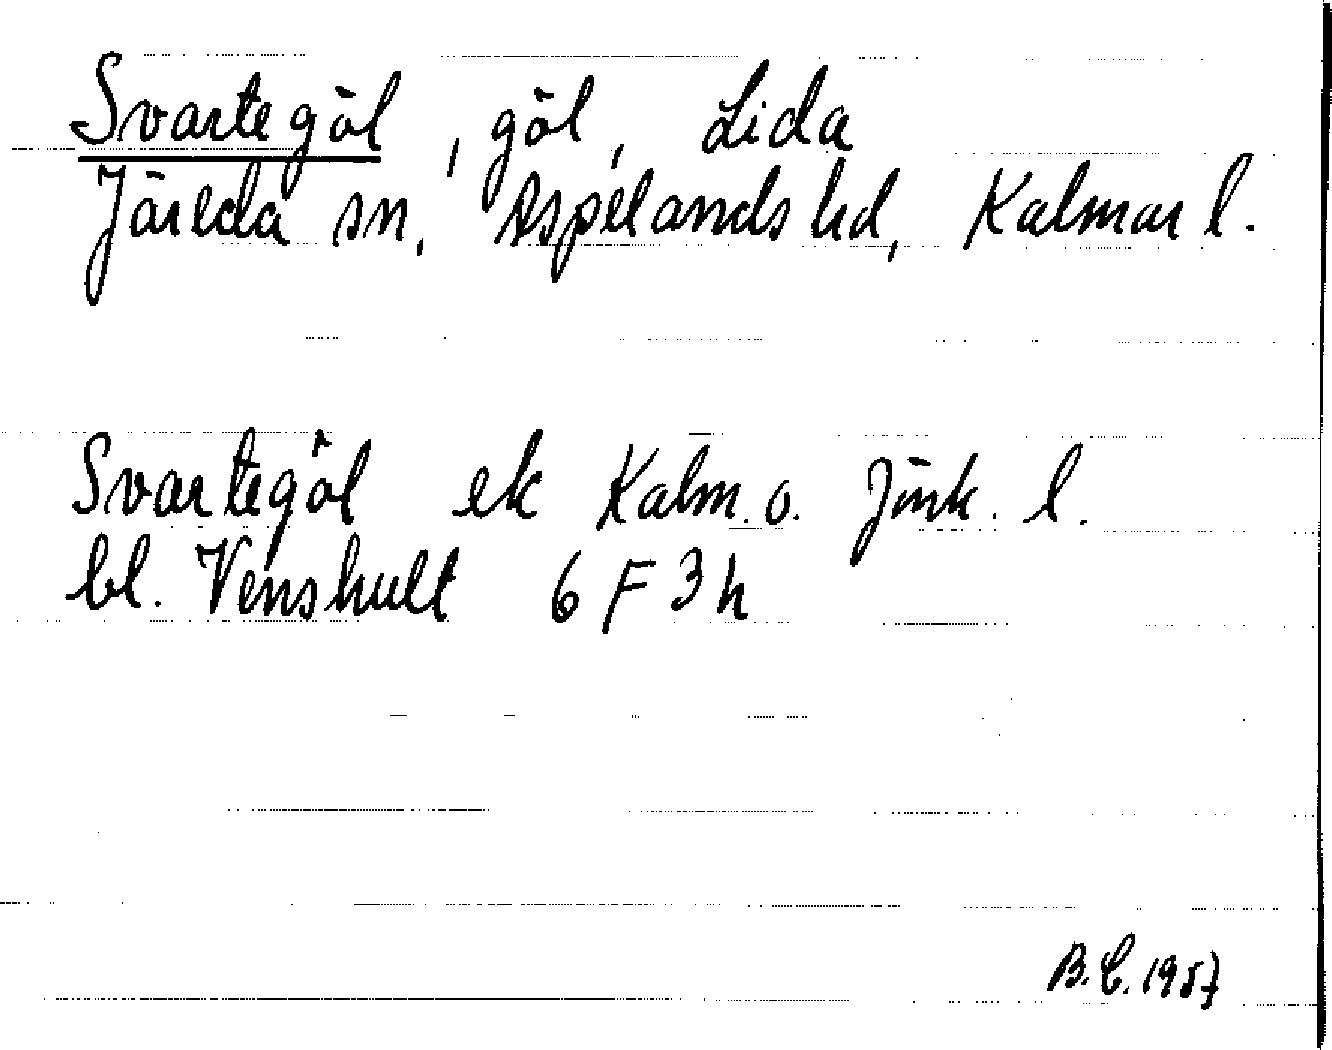 Svartegöl, göl, Lida
Järeda sn, Aspelands hd, Kalmar l.
Svartegöl ek Kalm. o. Jönk. l.
bl. Venshult 6 F 3 h
B.C. 1957